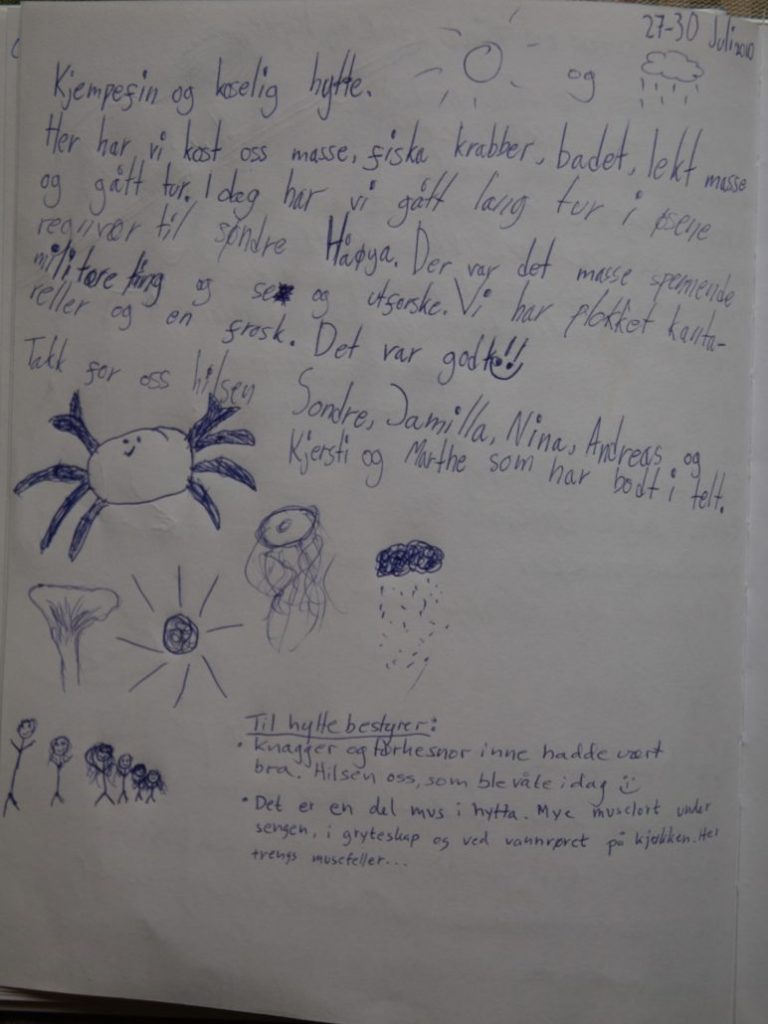 27-30 Juli 2010
Kjempefin og koselig hytte. og
Her har vi kost oss masse, fiska krabber, badet, lekt masse
og gått tur. I dag har vi gått lang tur i øsene
regnvær til søndre Håøya. Der var det masse spennende
militære ting og se og utforske. Vi har plokket kanta-
reller og en frosk. Det var godt!!
Takk for oss hilsen
Sondre, Jamilla, Nina, Andreas og
Kjersti og Marthe som har bodt i telt.
Til hyttebestyrer:
• Knagger og tørkesnor inne hadde vært
bra. Hilsen oss, som ble våte i dag
• Det er en del mus i hytta. Mye muselort under
sengen, i gryteskap og ved vannrøret på kjøkken. Her
trengs musefeller...